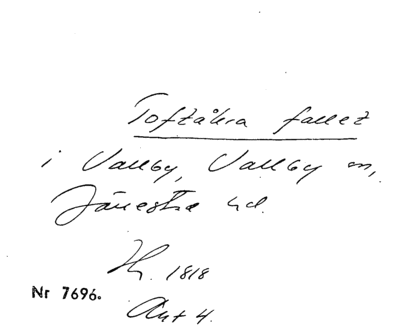 Toftåkra fallet
i Vallby, Vallby sn,
Järrestad hd.
Th. 1818
Akt 4.
Nr 7696.